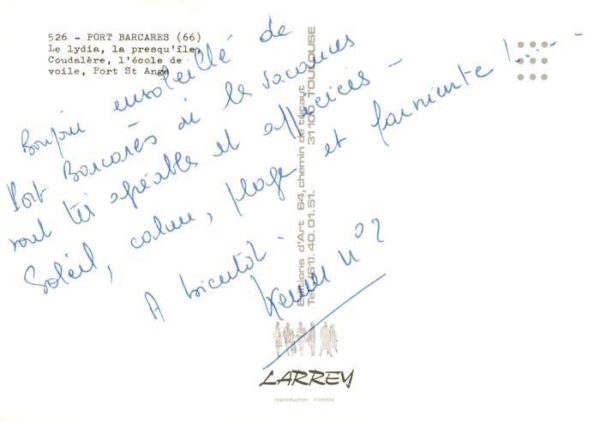 526 - PORT BARCARES (66)
Le lydia, la presqu'île
Coudalère, l'école de
voile, Port St Ange
Bonjour ensoleillé de
Port Barcarès où les vacances
sont très agréables et appréciées -
Soleil, calme, plage et farniente !...
A bientôt -
n° 2
Editions d'Art 64, chemin de tucaut
31100 TOULOUSE
Tel. (61). 40.01.51.
LARREY
reproduction interdite